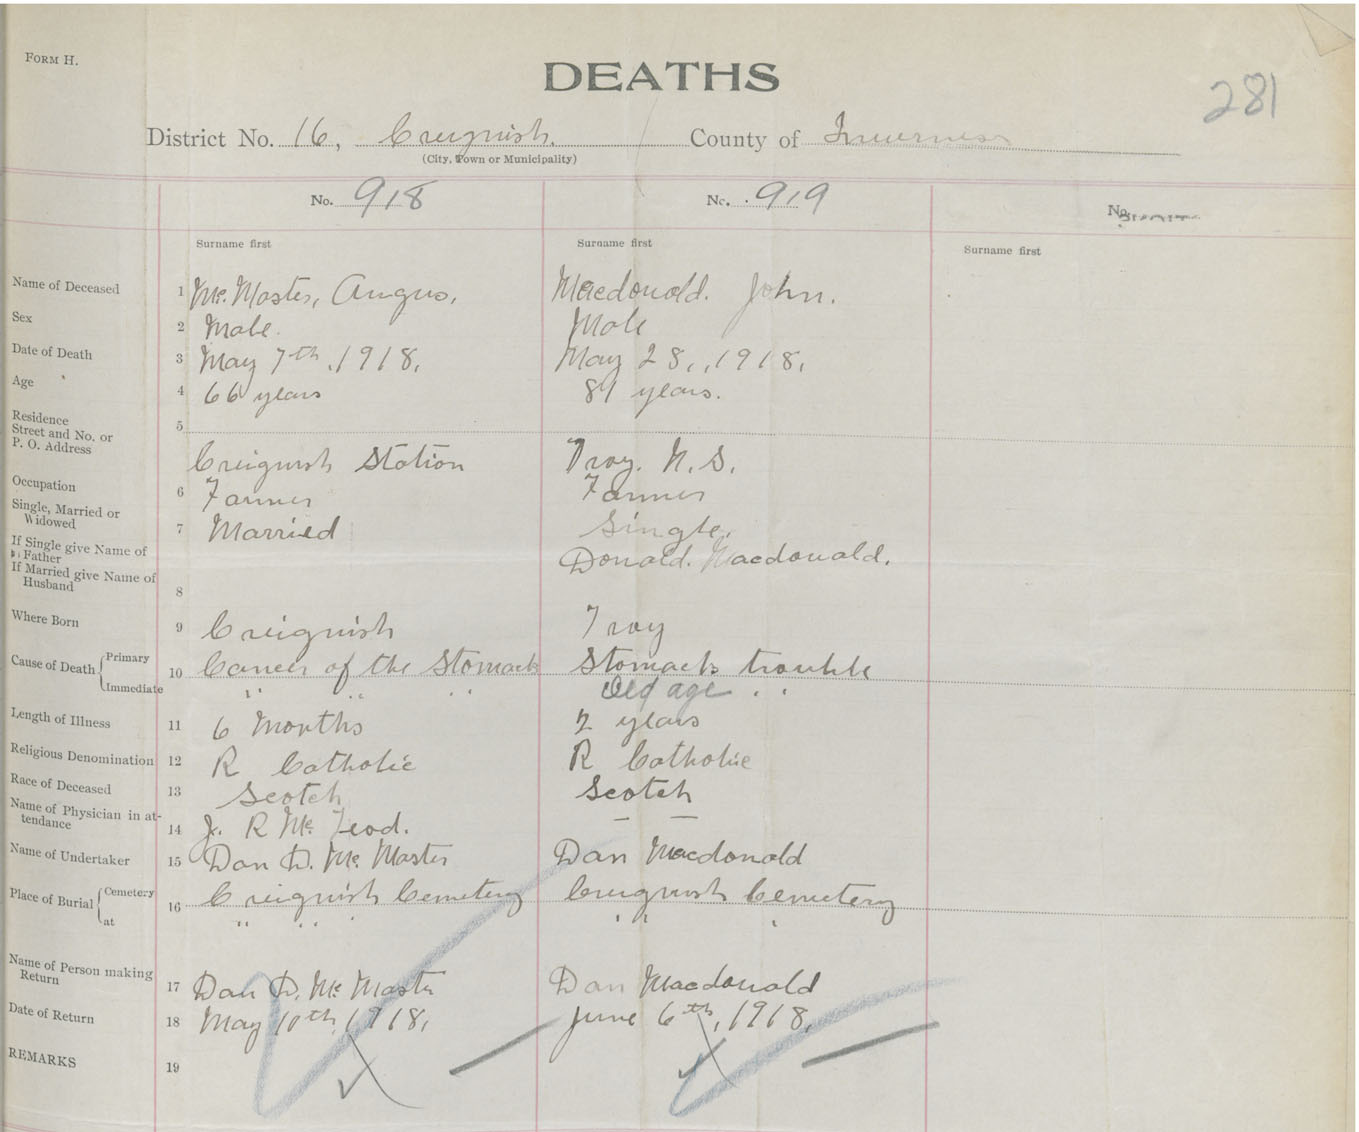 FORM H.
DEATHS
281
District No. 16, Creignish. County of Inverness
(City, Town or Municipality)
No. 918 No. 919 No.
Surname first Surname first Surname first
Name of Deceased 1 Mc.Master, Angus, Macdonald. John.
Sex 2 Male. Male
Date of Death 3 May 7th, 1918, May 28,, 1918,
Age 4 66 years years.
Residence
Street and No. or
P. O. Address 5
Creignish Station Troy. N. S.
Occupation 6 Farmer Farmer
Single, Married or
Widowed 7 Married Single.
If Single give Name of
Father Donald. Macdonald.
If Married give Name of
Husband 8
Where Born 9 Creignish Troy
Cause of Death Primary 10 Cancer of the Stomach Stomach trouble
Immediate " " " Old age
Length of Illness 11 6 Months 2 years
Religious Denomination 12 R Catholic R Catholic
Race of Deceased 13 Scotch Scotch
Name of Physician in at-
tendance 14 J. R Mc. Leod. — —
Name of Undertaker 15 Dan D. Mc Master Dan Macdonald
Place of Burial Cemetery 16 Creignish Cemetery Creignish Cemetery
at " " " "
Name of Person making
Return 17 Dan D. Mc Master Dan Macdonald
Date of Return 18 May 10th, 1918, June 6th, 1918,
REMARKS 19